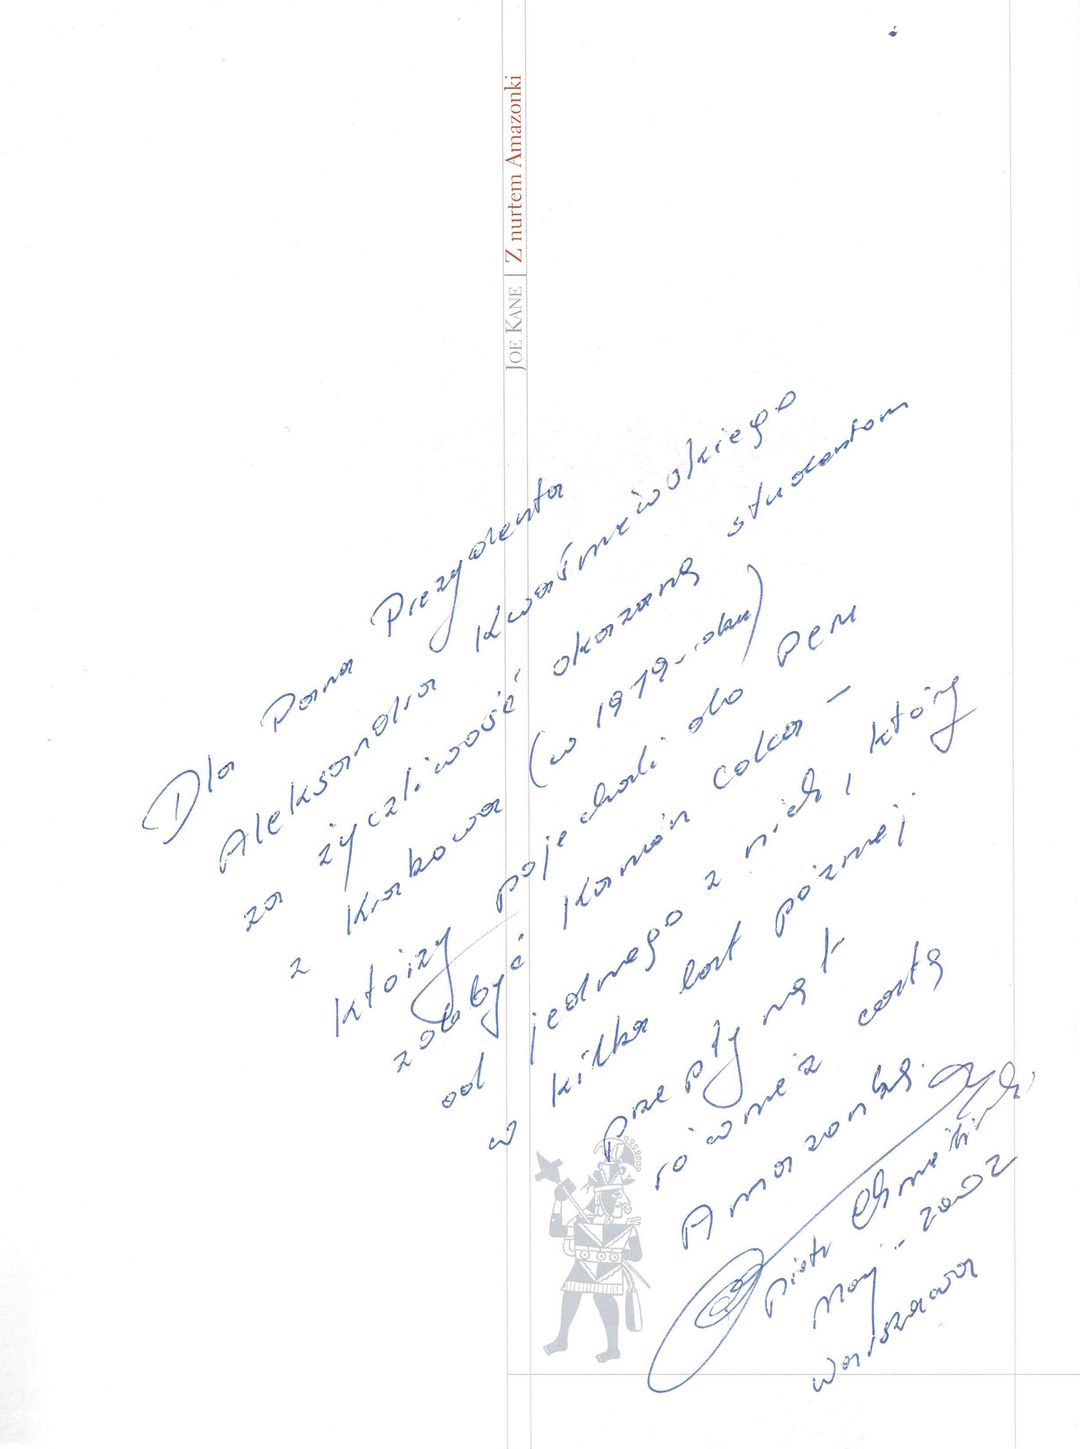 JOE KANE | Z nurtem Amazonki
Dla Pana Prezydenta
Aleksandra Kwaśniewskiego
za życzliwość okazaną studentom
z Krakowa (w 1979-roku)
którzy pojechali do Peru
zdobyć Kanion Colca –
od jednego z nich, który
w kilka lat później
przepłynął
również całą
Amazonkę.
Piotr Chmieliński
Maj - 2002
Warszawa